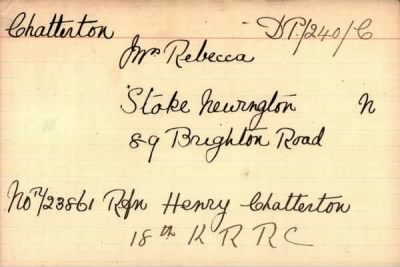 Chatterton DP./240/C
Mrs Rebecca
Stoke Newington N
89 Brighton Road
No R/23861 Rfn Henry Chatterton
18th K R R C